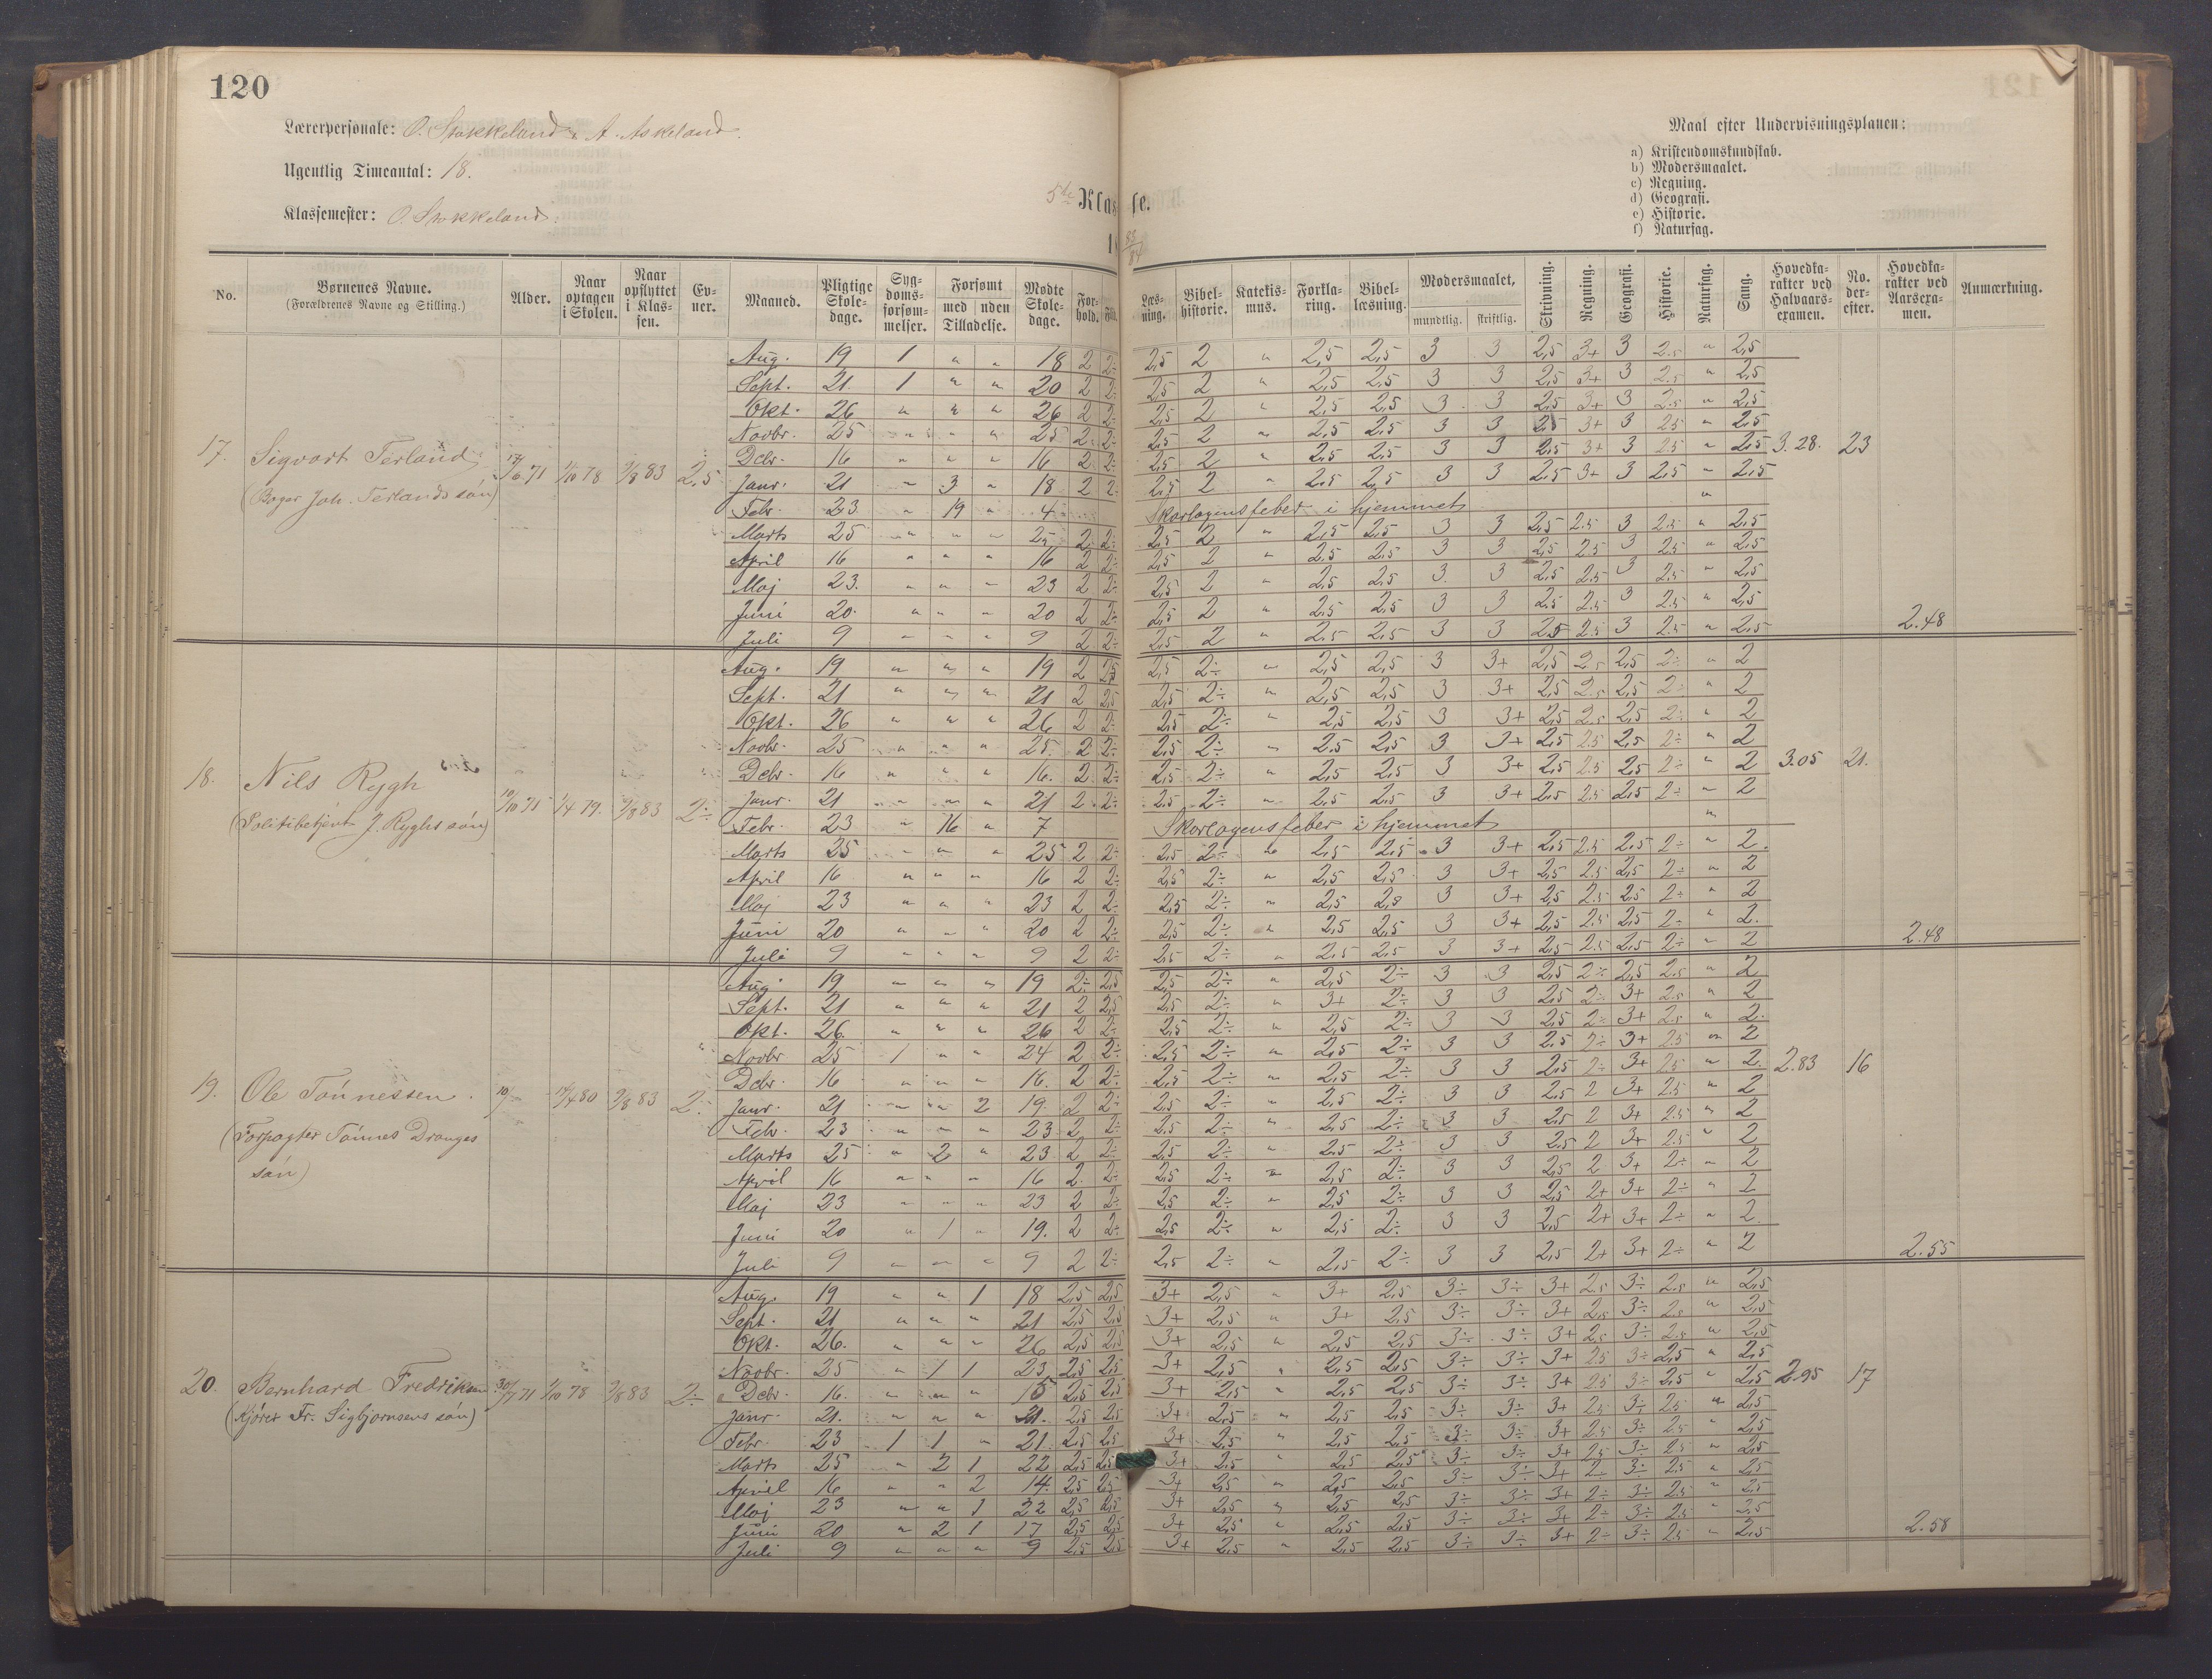 120
Lærerpersonale: O. Stokkeland & A. Askeland.
Ugentlig Timeantal: 18.
Klassemester: O. Stokkeland.
5te Klasse.
18 83/84
Maal efter Undervisningsplanen:
a) Kristendomskundskab.
b) Modersmaalet.
c) Regning.
d) Geografi.
e) Historie.
f) Naturfag.
No. Børnenes Navne. (Forældrenes Navne og Stilling.) Alder. Naar optagen i Skolen. Naar opflyttet i Klassen. Evner. Maaned. Pligtige Skoledage. Sygdomsforsømmelser. Forsømt med uden Tilladelse. Mødte Skoledage. Forhold. Flid. Læsning. Bibelhistorie. Katekismus. Forklaring. Bibellæsning. Modersmaalet, mundtlig. skriftlig. Skrivning. Regning. Geografi. Historie. Naturfag. Sang. Hovedkarakter ved Halvaarsexamen. No. derefter. Hovedkarakter ved Aarsexamen. Anmærkning.
Aug. 19 1 " " 18 2 2÷ 2,5 2 " 2,5 2,5 3 3 2,5 3+ 3 2.5 " 2,5
Sept. 21 1 " " 20 2 2÷ 2,5 2 " 2,5 2,5 3 3 2,5 3+ 3 2.5 " 2,5
Okt. 26 " " " 26 2 2÷ 2,5 2 " 2,5 2,5 3 3 2,5 3+ 3 2.5 " 2,5
Novbr. 25 " " " 25 2 2÷ 2,5 2 " 2,5 2,5 3 3 2,5 3+ 3 2.5 " 2,5
17. Sigvart Terland 71 1/10 78 2/8 83 2,5 Debr. 16 " " " 16 2 2÷ 2,5 2 " 2,5 2,5 3 3 2,5 3+ 3 2.5 " 2,5 3.28. 23
(Bager Joh. Terlands søn) Janr. 21 " 3 " 18 2 2÷ 2,5 2 " 2,5 2,5 3 3 2,5 3+ 3 2,5 " 2,5
Febr. 23 " 19 " 4 Skarlagensfeber i hjemmet "
Marts 25 " " " 25 2 2÷ 2,5 2 " 2,5 2,5 3 3 2,5 2.5 3 2.5 " 2,5
April 16 " " " 16 2 2÷ 2,5 2 " 2,5 2,5 3 3 2,5 2.5 3 2.5 " 2,5
Maj 23. " " " 23 2 2÷ 2,5 2 " 2,5 2,5 3 3 2,5 2.5 3 2.5 " 2,5
Juni 20. " " " 20 2 2÷ 2,5 2 " 2,5 2,5 3 3 2,5 2.5 3 2.5 " 2,5
Juli 9 " " " 9 2 2÷ 2,5 2 " 2,5 2,5 3 3 2,5 2.5 3 2.5 " 2,5 2.48
Aug. 19 " " " 19 2 2,5 2,5 2÷ " 2,5 2,5 3 3+ 2,5 2.5 2,5 2÷ " 2
Sept. 21 " " " 21 2 2,5 2,5 2÷ " 2,5 2,5 3 3+ 2,5 2.5 2,5 2÷ " 2
Okt. 26 " " " 26 2 2÷ 2,5 2÷ " 2,5 2,5 3 3+ 2,5 2.5 2,5 2÷ " 2
Novbr. 25 " " " 25. 2 2÷ 2,5 2÷ " 2,5 2,5 3 3+ 2,5 2.5 2,5 2÷ " 2
18. Nils Rygh 1/4 79. 2/8 83 2÷ Debr. 16 " " " 16. 2 2÷ 2,5 2÷ " 2,5 2,5 3 3+ 2,5 2.5 2,5 2÷ " 2 3.05 21.
(Politibetjent J. Ryghs søn) Janr. 21 " " " 21 2 2÷ 2,5 2÷ " 2,5 2,5 3 3+ 2,5 2.5 2,5 2÷ " 2
Febr. 23 " 16 " 7 Skarlagensfeber i hjemmet "
Marts 25 " " " 25 2 2÷ 2,5 2÷ " 2,5 2,5 3 3+ 2,5 2.5 2,5 2÷ " 2.
April 16 " " " 16 2 2÷ 2,5 2÷ " 2,5 2,5 3 3+ 2,5 2.5 2,5 2÷ " 2
Maj 23 " " " 23 2 2÷ 2,5 2÷ " 2,5 2,5 3 3+ 2,5 2.5 2,5 2÷ " 2
Juni 20 " " " 20 2 2÷ 2,5 2÷ " 2,5 2,5 3 3+ 2,5 2.5 2,5 2÷ " 2.
Juli 9 " " " 9 2 2÷ 2,5 2÷ " 2,5 2,5 3 3+ 2,5 2.5 2,5 2÷ " 2 2.48
Aug 19 " " " 19 2÷ 2,5 2,5 2÷ " 2,5 2÷ 3 3 2,5 2÷ 2,5 2.5 " 2
Sept. 21 " " " 21 2 2,5 2,5 2÷ " 3+ 2÷ 3 3 2,5 2÷ 3+ 2.5 " 2
Okt. 26. " " " 26 2 2÷ 2,5 2÷ " 2,5 2÷ 3 3 2,5 2÷ 3+ 2.5 " 2
Novbr 25 1 " " 24 2 2÷ 2,5 2÷ " 2,5 2÷ 3 3 2,5 2÷ 3+ 2.5 " 2
19. Ole Tønnessen. 80 2/8 83 2÷ Debr. 16 " " " 16. 2 2÷ 2,5 2÷ " 2,5 2÷ 3 3 2,5 2÷ 3+ 2.5 " 2. 2.83 16
(Forpagter Tønnes Dranges søn) Janr. 21 " " 2 19. 2 2÷ 2,5 2÷ " 2,5 2÷ 3 3 2,5 2 3+ 2.5 " 2
Febr. 23 " " " 23 2 2÷ 2,5 2÷ " 2,5 2÷ 3 3 2,5 2 3+ 2.5 " 2
Marts 25 " 2 " 23 2 2÷ 2,5 2÷ " 2,5 2÷ 3 3 2,5 2 3+ 2.5 " 2
April 16 " " " 16 2 2÷ 2,5 2÷ " 2,5 2÷ 3 3 2,5 2 3+ 2÷ " 2
Maj 23 " " " 23 2 2÷ 2,5 2÷ " 2,5 2÷ 3 3 2,5 2+ 3+ 2÷ " 2
Juni 20 " 1 " 19. 2 2÷ 2,5 2÷ " 2,5 2÷ 3 3 2,5 2+ 3+ 2÷ " 2.
Juli 9 " " " 9 2 2÷ 2,5 2÷ " 2,5 2÷ 3 3 2,5 2+ 3+ 2÷ " 2 2.55
Aug. 19 " " 1 18 2,5 2,5 3+ 2,5 " 3+ 2,5 3÷ 3÷ 3+ 2.5 3÷ 2.5 " 2,5
Sept. 21 " " " 21 2,5 2,5 3+ 2,5 " 3+ 2,5 3÷ 3÷ 3+ 2.5 3÷ 2.5 " 2,5
Okt. 26. " " " 26 2,5 2,5 3+ 2,5 " 2,5 2,5 3÷ 3÷ 3+ 2.5 3÷ 2.5 " 2,5
Novbr. 25 " 1 1 23 2,5 2,5 3+ 2,5 " 2,5 2,5 3÷ 3÷ 3+ 2.5 3÷ 2,5 " 2,5
20. Bernhard Fredriksen 71 1/10 78 2/8 83 2÷ Debr. 16. " " " 16 2,5 2,5 3+ 2,5 " 2,5 2,5 3÷ 3÷ 3+ 2.5 3÷ 2,5 " 2,5 2.95 17
(Kjører Fr. Sigbjørnsens søn) Janr. 21. " " " 21. 2,5 2,5 3+ 2,5 " 2,5 2,5 3÷ 3÷ 3+ 2.5 3÷ 2.5 " 2,5
Febr. 23 1 1 " 21. 2,5 2,5 3+ 2,5 " 2,5 2,5 3÷ 3÷ 3+ 2.5 3÷ 2.5 " 2,5
Marts 25 " 2 1 22 2,5 2,5 3+ 2,5 " 2,5 2,5 3÷ 3÷ 3+ 2.5 3÷ 2.5 " 2,5
April 16 " " 2 14. 2,5 2,5 3+ 2,5 " 2,5 2,5 3÷ 3÷ 3+ 2÷ 3÷ 2.5 " 2,5
Maj 23 " " 1 22 2,5 2,5 3+ 2,5 " 2,5 2,5 3÷ 3÷ 3+ 2÷ 3÷ 2.5 " 2,5
Juni 20 " 2 1 17 2,5 2,5 3+ 2,5 " 2,5 2,5 3÷ 3÷ 3+ 2÷ 3÷ 2.5 " 2,5
Juli 9 " " " 9 2,5 2,5 3+ 2,5 " 2,5 2,5 3÷ 3÷ 3+ 2÷ 3÷ 2.5 " 2,5 2.58